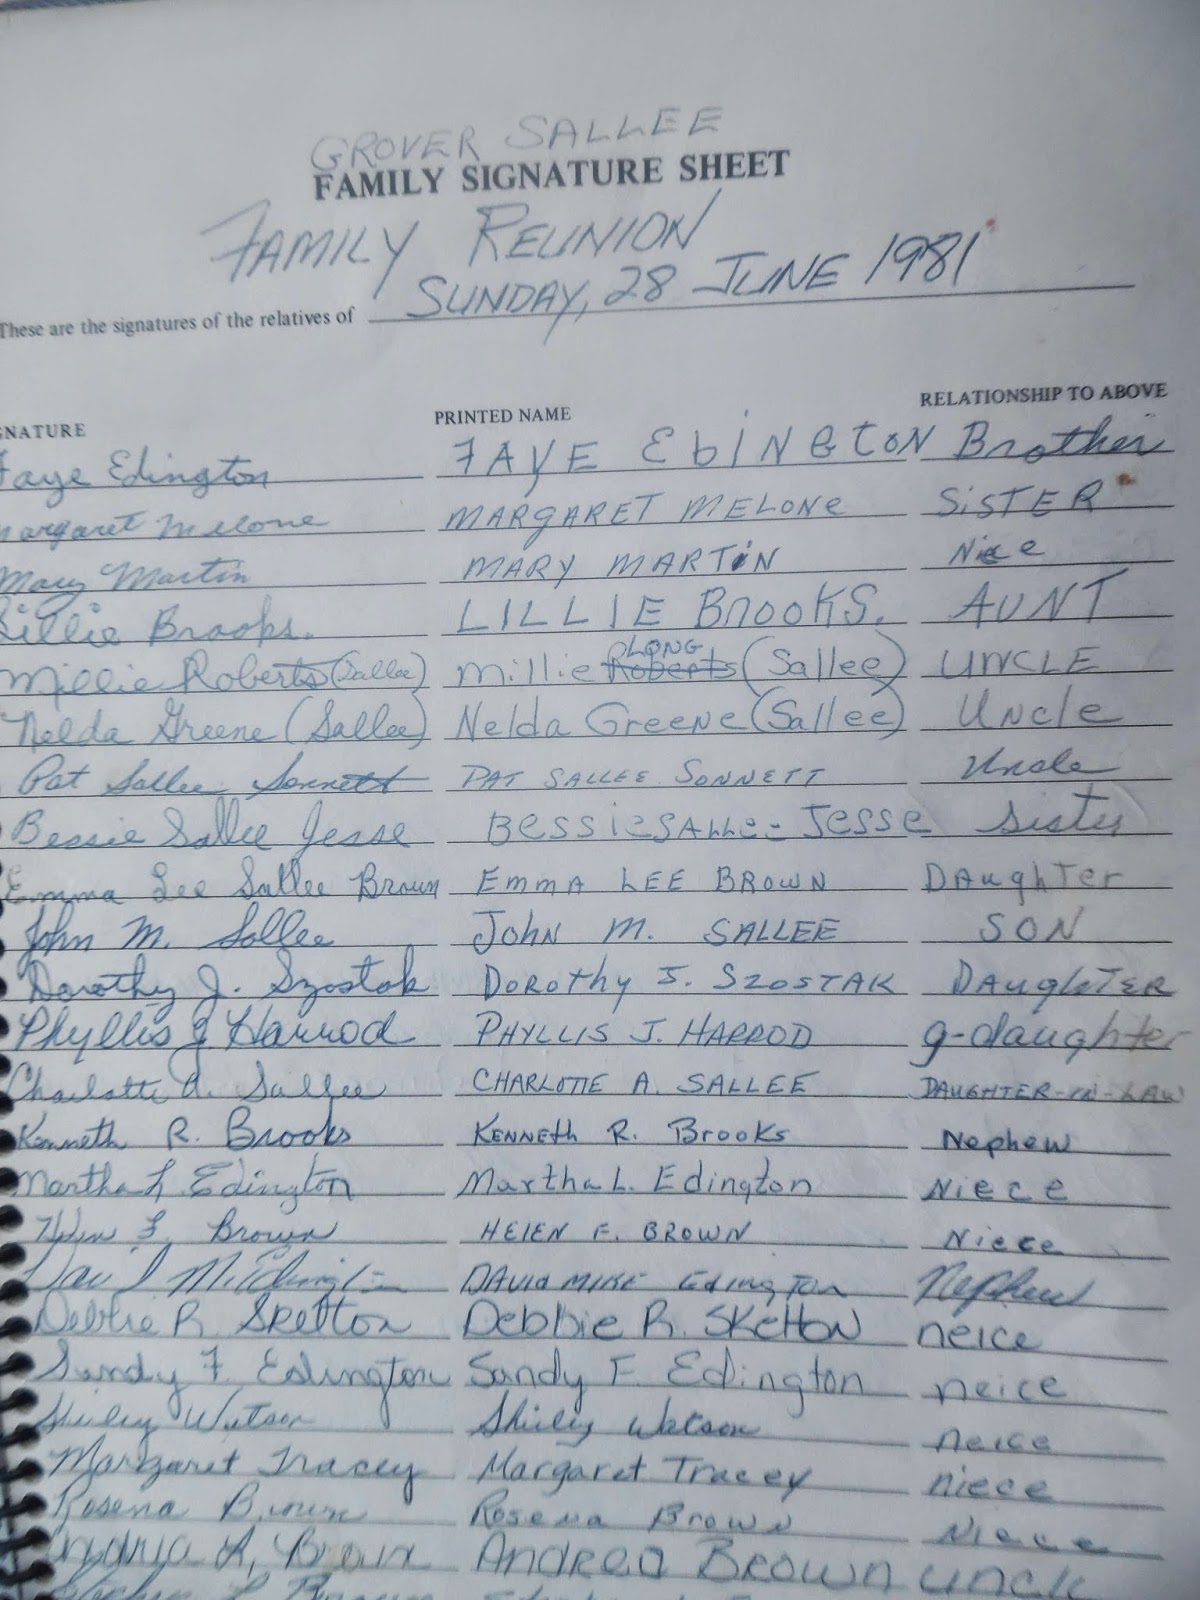 GROVER SALLEE
FAMILY SIGNATURE SHEET
FAMILY REUNION
SUNDAY, 28 JUNE 1981
These are the signatures of the relatives of
NATURE PRINTED NAME RELATIONSHIP TO ABOVE
Faye Edington FAYE EdiNGTON Brother
Margaret Melone MARGARET MELONE SiSTER
Mary Martin MARY MARTIN Niece
Lillie Brooks. LILLIE BrooKS. AUNT
Millie Roberts (Sallee) Millie Roberts LONG (Sallee) UNCLE
Nelda Greene (Sallee) Nelda Greene (Sallee) Uncle
Pat Sallee Sonnett PAT SALLEE SONNETT Uncle
Bessie Sallee Jesse BessieSALLee-Jesse Sister
Emma Lee Sallee Brown EMMA LEE BROWN DAughTer
John M. Sallee John M. SALLEE SON
Dorothy J. Szostak DOROThy J. SZOSTAK DAughTER
Phyllis J Harrod PHYLLIS J. HARROD g-daughter
Charlotte A. Sallee CHARLOTTE A. SALLEE DAUGHTER-IN-LAW
Kenneth R. Brooks KENNETh R. BrooKs Nephew
Martha L Edington Martha L. Edington Niece
Helen F. Brown HELEN F. BROWN Niece
David M Edington DAVID MIKE Edington Nephew
Debbie R Skelton Debbie R. SKeltoN neice
Sandy F. Edington Sandy F. Edington neice
Shirley Watson Shirley Watson neice
Margaret Tracey Margaret Tracey niece
Rosena Brown Rosena Brown Niece
Andrea A. Brown Andrea Brown uncle